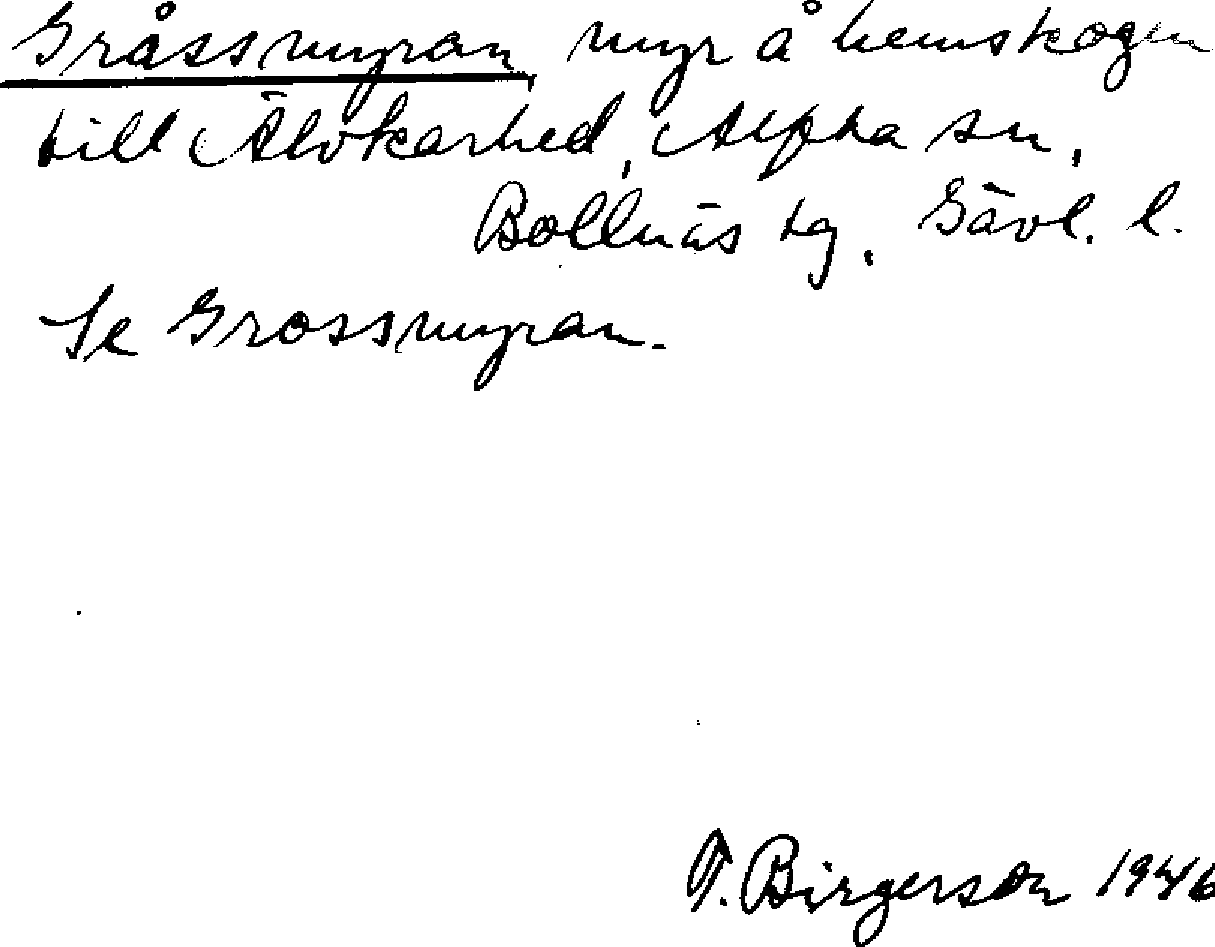 Gråssmyran myr å hemskogen
till Älvkarhed, Alfta sn,
Bollnäs tg, Gävl. l.
Se Grossmyran.
T. Birgerson 1946